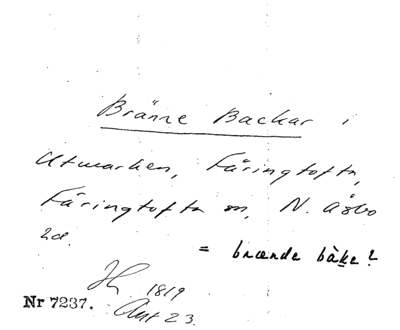 Bränne Backar i
Utmarken, Färingtofta,
Färingtofta sn, N. Åsbo
hd.
= brænde bàke?
1819
Akt 23.
Nr 7237.